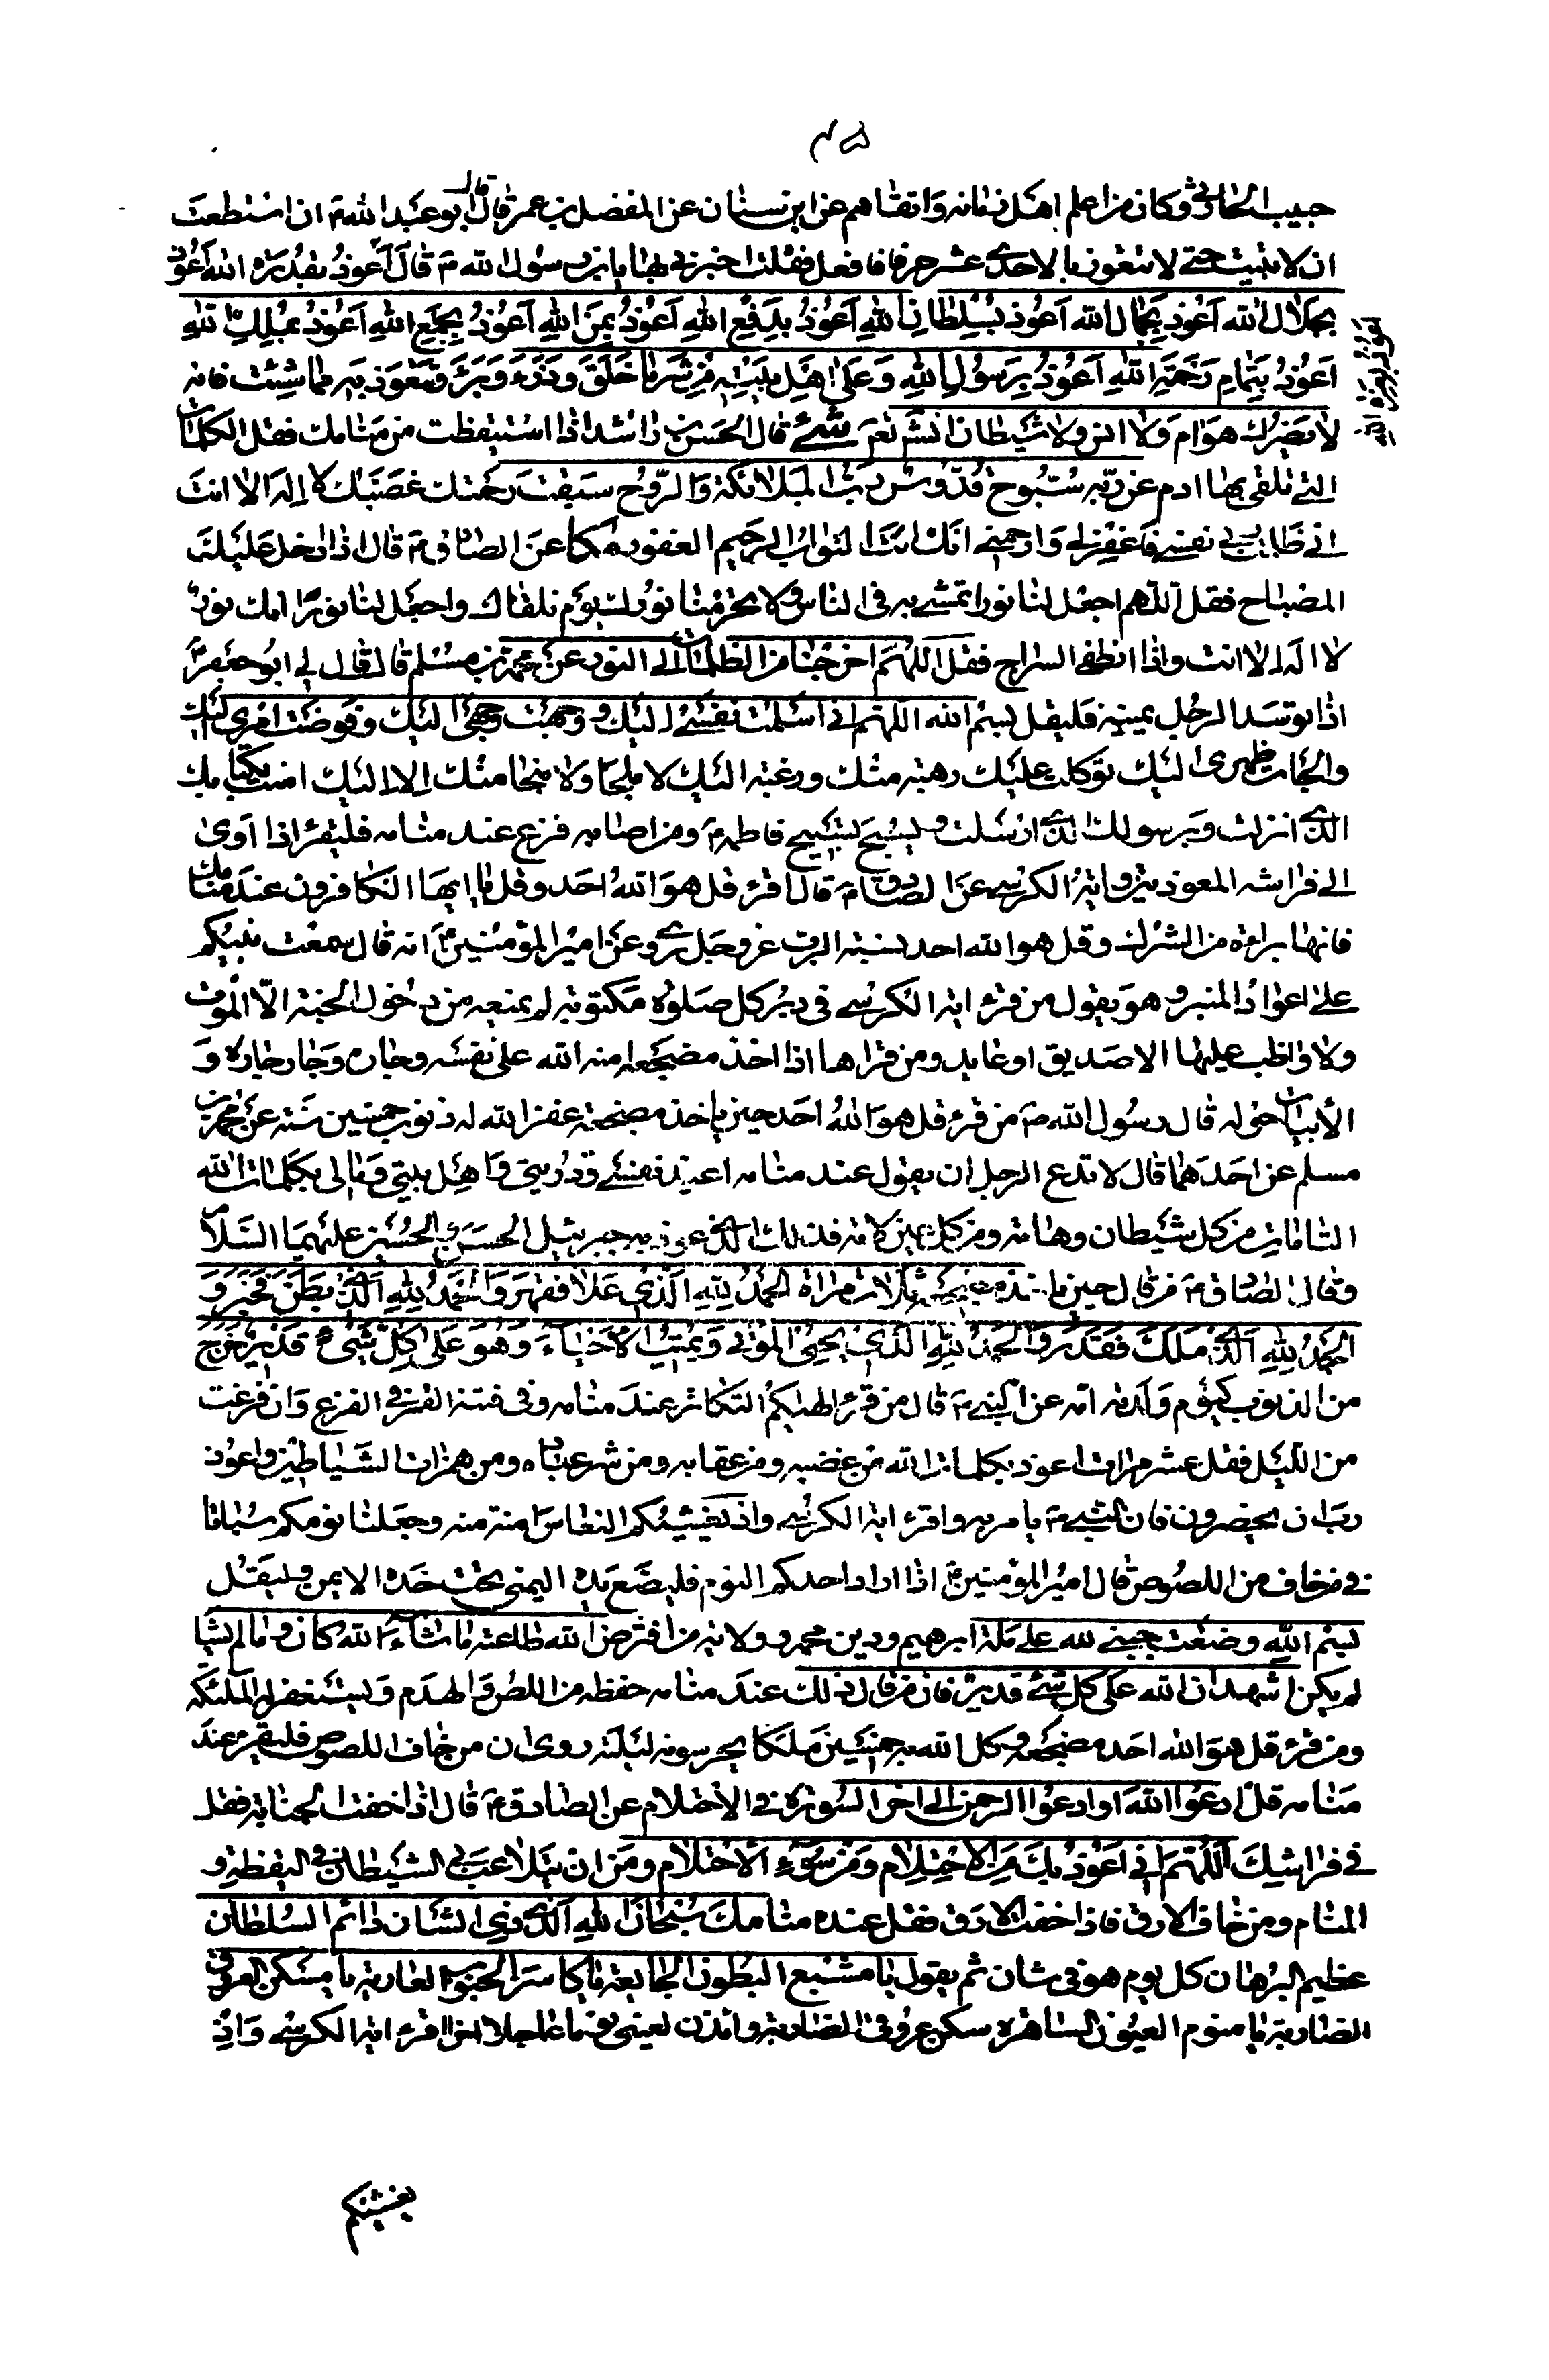 حبيب الخارثي وكان من اعلم اهل زمانه واتقاهم عن ابن سنان عن المفضل بن عمر قال قال ابو عبد الله ع ان استطعت
ان لا تبيت حتى لا تتعوذ بالاحدى عشر حرفا فافعل فقلت اخبرني بها يا بن رسول الله ص قال اعوذ بقدرة الله اعوذ
بجلال الله اعوذ بجمال الله اعوذ بسلطان الله اعوذ بدفع الله اعوذ بمن الله اعوذ بجمع الله اعوذ بملك الله
اعوذ بتمام رحمة الله اعوذ برسول الله وعلى اهل بيته من شر ما خلق وذرء وبرء وتعوذ به مما شئت فانه
لا يضرك هوام ولا انس ولا شيطان انشر نعم شئ قال الحسن بن راشد اذا استيقظت من منامك فقل الكلمات
التي تلقى بها ادم عن ربه سبوح قدوس رب الملائكة والروح سبقت رحمتك غضبك لا اله الا انت
اني ظلمت نفسي فاغفر لي وارحمني انك انت التواب الرحيم الغفور كا عن الصادق ع قال اذا ادخل عليك
المصباح فقل اللهم اجعل لنا نورا نمشي به في الناس ولا تحرمنا نورك يوم نلقاك واجعل لنا نورا انك نور
لا اله الا انت واذا انطفى السراج فقل اللهم اخرجنا من الظلمات الى النور عن محمد بن مسلم قال قال لي ابو جعفر ع
اذا توسد الرجل يمينه فليقل بسم الله اللهم اني اسلمت نفسي اليك ووجهت وجهي اليك وفوضت امري اليك
والجات ظهري اليك توكلت عليك رهبة منك ورغبة اليك لا ملجا ولا منجا منك الا اليك امنت بكتابك
الذي انزلت وبرسولك الذي ارسلت ويسبح تسبيح فاطمة ع ومن اصابه فزع عند منامه فليقرء اذا اوى
الى فراشه المعوذتين واية الكرسي عن الصادق ع قال اقرء قل هو الله احد وقل يا ايها الكافرون عند منامك
فانها براءة من الشرك وقل هو الله احد نسبة الرب عز وجل وعن امير المؤمنين ع انه قال سمعت نبيكم
على اعواد المنبر وهو يقول من قرء اية الكرسي في دبر كل صلوة مكتوبة لم يمنعه من دخول الجنة الا الموت
ولا يواظب عليها الا صديق او عابد ومن قراها اذا اخذ مضجعه امنه الله على نفسه وجاره وجار جاره و
الابيات حوله قال رسول الله ص من قرء قل هو الله احد حين ياخذ مضجعه غفر الله له ذنوب خمسين سنة عن محمد بن
مسلم عن احدهما قال لا تدع الرجل ان يقول عند منامه اعيذ نفسي وذريتي واهل بيتي ومالي بكلمات الله
التامات من كل شيطان وهامة ومن كل عين لامة فذلك الذي عوذ به جبرئيل الحسن و الحسين عليهما السلام
وقال الصادق ع من قال حين ياخذ مضجعه ثلاث مرات الحمد لله الذي علا فقهر والحمد لله الذي بطن فخبر و
الحمد لله الذي ملك فقدر والحمد لله الذي يحيي الموتى ويميت الاحياء وهو على كل شيء قدير خرج
من الذنوب كيوم ولدته امه عن النبي ص قال من قرء الهيكم التكاثر عند منامه وقي فتنة القبر في الفزع وان فزعت
من الليل فقل عشر مرات اعوذ بكلمات الله من غضبه ومن عقابه ومن شر عباده ومن همزات الشياطين واعوذ
رب ان يحضرون فان النبي ص يامر به واقرء اية الكرسي واذ يغشيكم النعاس امنة منه وجعلنا نومكم سباتا
في من خاف من اللصوص قال امير المؤمنين ع اذا اراد احدكم النوم فليضع يده اليمنى تحت خده الايمن وليقل
بسم الله وضعت جنبي لله على ملة ابرهيم ودين محمد وولاية من افترض الله طاعته ما شاء الله كان وما لم يشا
لم يكن اشهد ان الله على كل شئ قدير فان من قال ذلك عند منامه حفظه من اللص والهدم ويستغفر له الملئكة
ومن قرء قل هو الله احد مضجعه وكل الله به خمسين ملكا يحرسونه ليلته روى ان من خاف اللصوص فليقرء عند
منامه قل ادعوا الله او ادعوا الرحمن الى اخر السورة في الاحتلام عن الصادق ع قال اذا خفت الجنابة فقل
في فراشك اللهم اني اعوذ بك من الاحتلام ومن سوء الاحلام ومن ان يتلاعب بي الشيطان في اليقظة و
المنام ومن خاف الارق فاذا خفت الارق فقل عند منامك سبحان الله الذي ذي الشان دائم السلطان
عظيم البرهان كل يوم هو في شان ثم يقول يا مشبع البطون الجايعة يا كاسر الجنوب العارية يا مسكن العروق
الضاربة يا منوم العيون الساهرة سكن عروقي الضاربة وائذن لعيني نوما عاجلا اقرء اية الكرسي واذ
يغشيكم